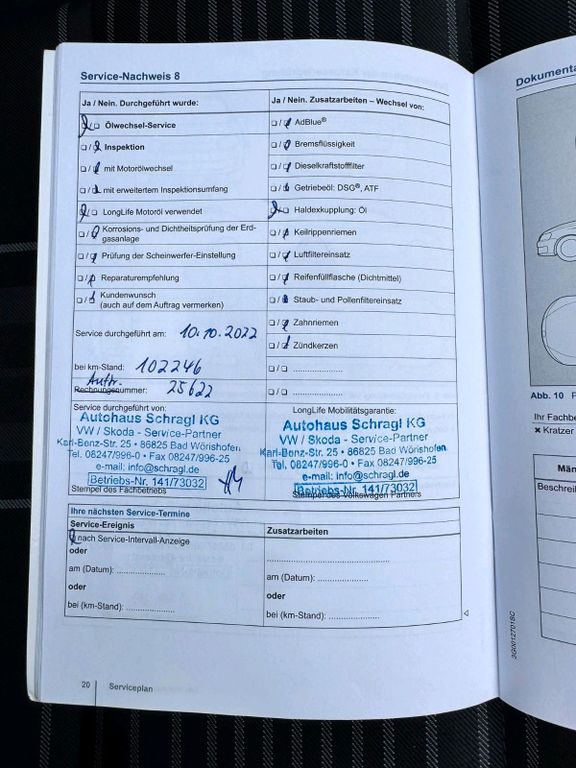 Service-Nachweis 8
Ja / Nein. Durchgeführt wurde:
Ölwechsel-Service
Inspektion
mit Motorölwechsel
mit erweitertem Inspektionsumfang
LongLife Motoröl verwendet
Korrosions- und Dichtheitsprüfung der Erd-
gasanlage
Prüfung der Scheinwerfer-Einstellung
Reparaturempfehlung
Kundenwunsch
(auch auf dem Auftrag vermerken)
Service durchgeführt am: 10.10.2022
bei km-Stand: 102246
Auftr.
Rechnungsnummer: 25622
Service durchgeführt von:
Autohaus Schragl KG
VW / Skoda - Service-Partner
Karl-Benz-Str. 25 • 86825 Bad Wörishofen
Tel. 08247/996-0 • Fax 08247/996-25
e-mail: info@schragl.de
Betriebs-Nr. 141/73032
Stempel des Fachbetriebs
Ja / Nein. Zusatzarbeiten – Wechsel von:
AdBlue®
Bremsflüssigkeit
Dieselkraftstofffilter
Getriebeöl: DSG®, ATF
Haldexkupplung: Öl
Keilrippenriemen
Luftfiltereinsatz
Reifenfüllflasche (Dichtmittel)
Staub- und Pollenfiltereinsatz
Zahnriemen
Zündkerzen
LongLife Mobilitätsgarantie:
Autohaus Schragl KG
VW / Skoda - Service-Partner
Karl-Benz-Str. 25 • 86825 Bad Wörishofen
Tel. 08247/996-0 • Fax 08247/996-25
e-mail: info@schragl.de
Betriebs-Nr. 141/73032
Stempel des Volkswagen Partners
Ihre nächsten Service-Termine
Service-Ereignis
nach Service-Intervall-Anzeige
oder
am (Datum): ....................
oder
bei (km-Stand): ....................
Zusatzarbeiten
am (Datum): ....................
oder
bei (km-Stand): ....................
20 Serviceplan
Dokumenta
Abb. 10
Ihr Fachbe
× Kratzer
Män
Beschreib
3G0012701SC